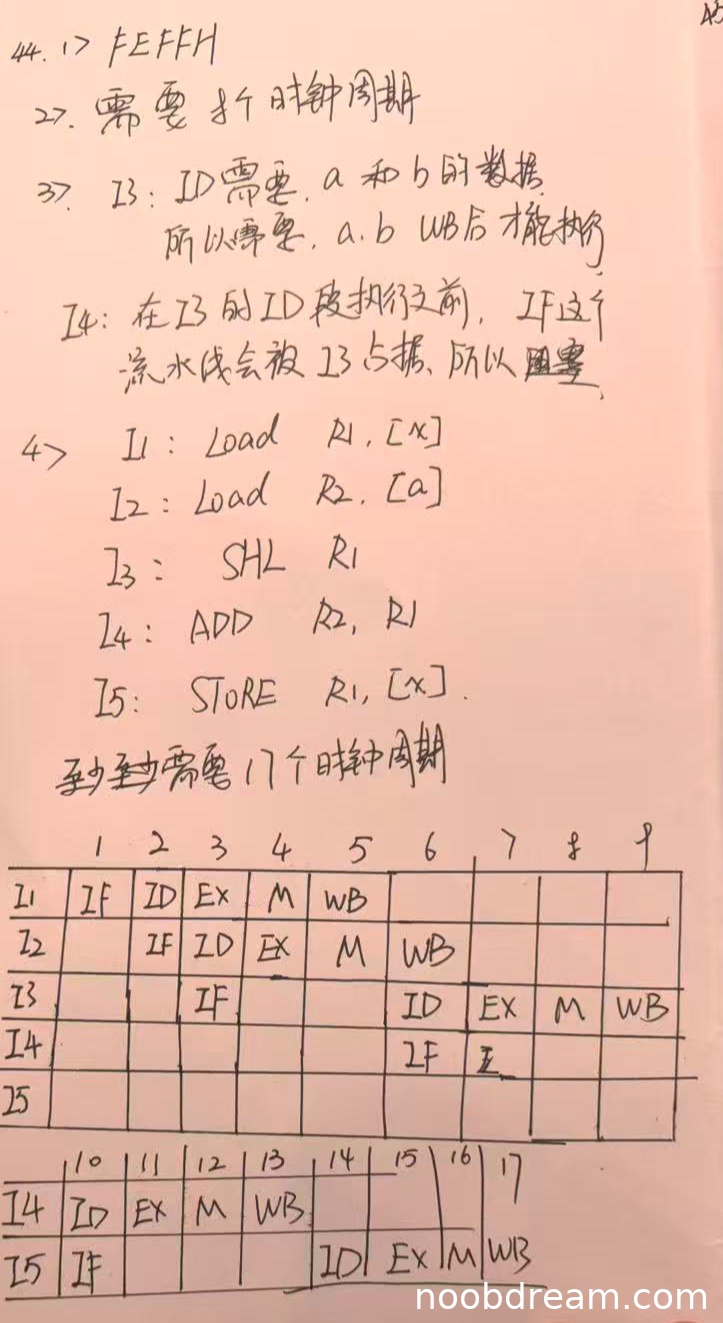 44. 1> FEFFH
2>. 需要 8个 时钟周期
3>. I3: ID需要. a 和 b 的数据
所以需要. a. b WB后 才能执行
I4: 在 I3 的 ID 段执行之前, IF这个
流水线会被 I3 占据、所以
4> I1: Load R1, [x]
I2: Load R2, [a]
I3: SHL R1
I4: ADD R2, R1
I5: STORE R1, [x].
需要 17个时钟周期
1 2 3 4 5 6 7 8 9
I1 IF ID EX M WB
I2 IF ID EX M WB
I3 IF ID EX M WB
I4 IF
I5
10 11 12 13 14 15 16 17
I4 ID EX M WB
I5 IF ID EX M WB
noobdream.com